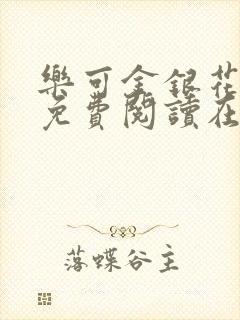 樂可金銀花
免費閱讀在
落蝶谷主